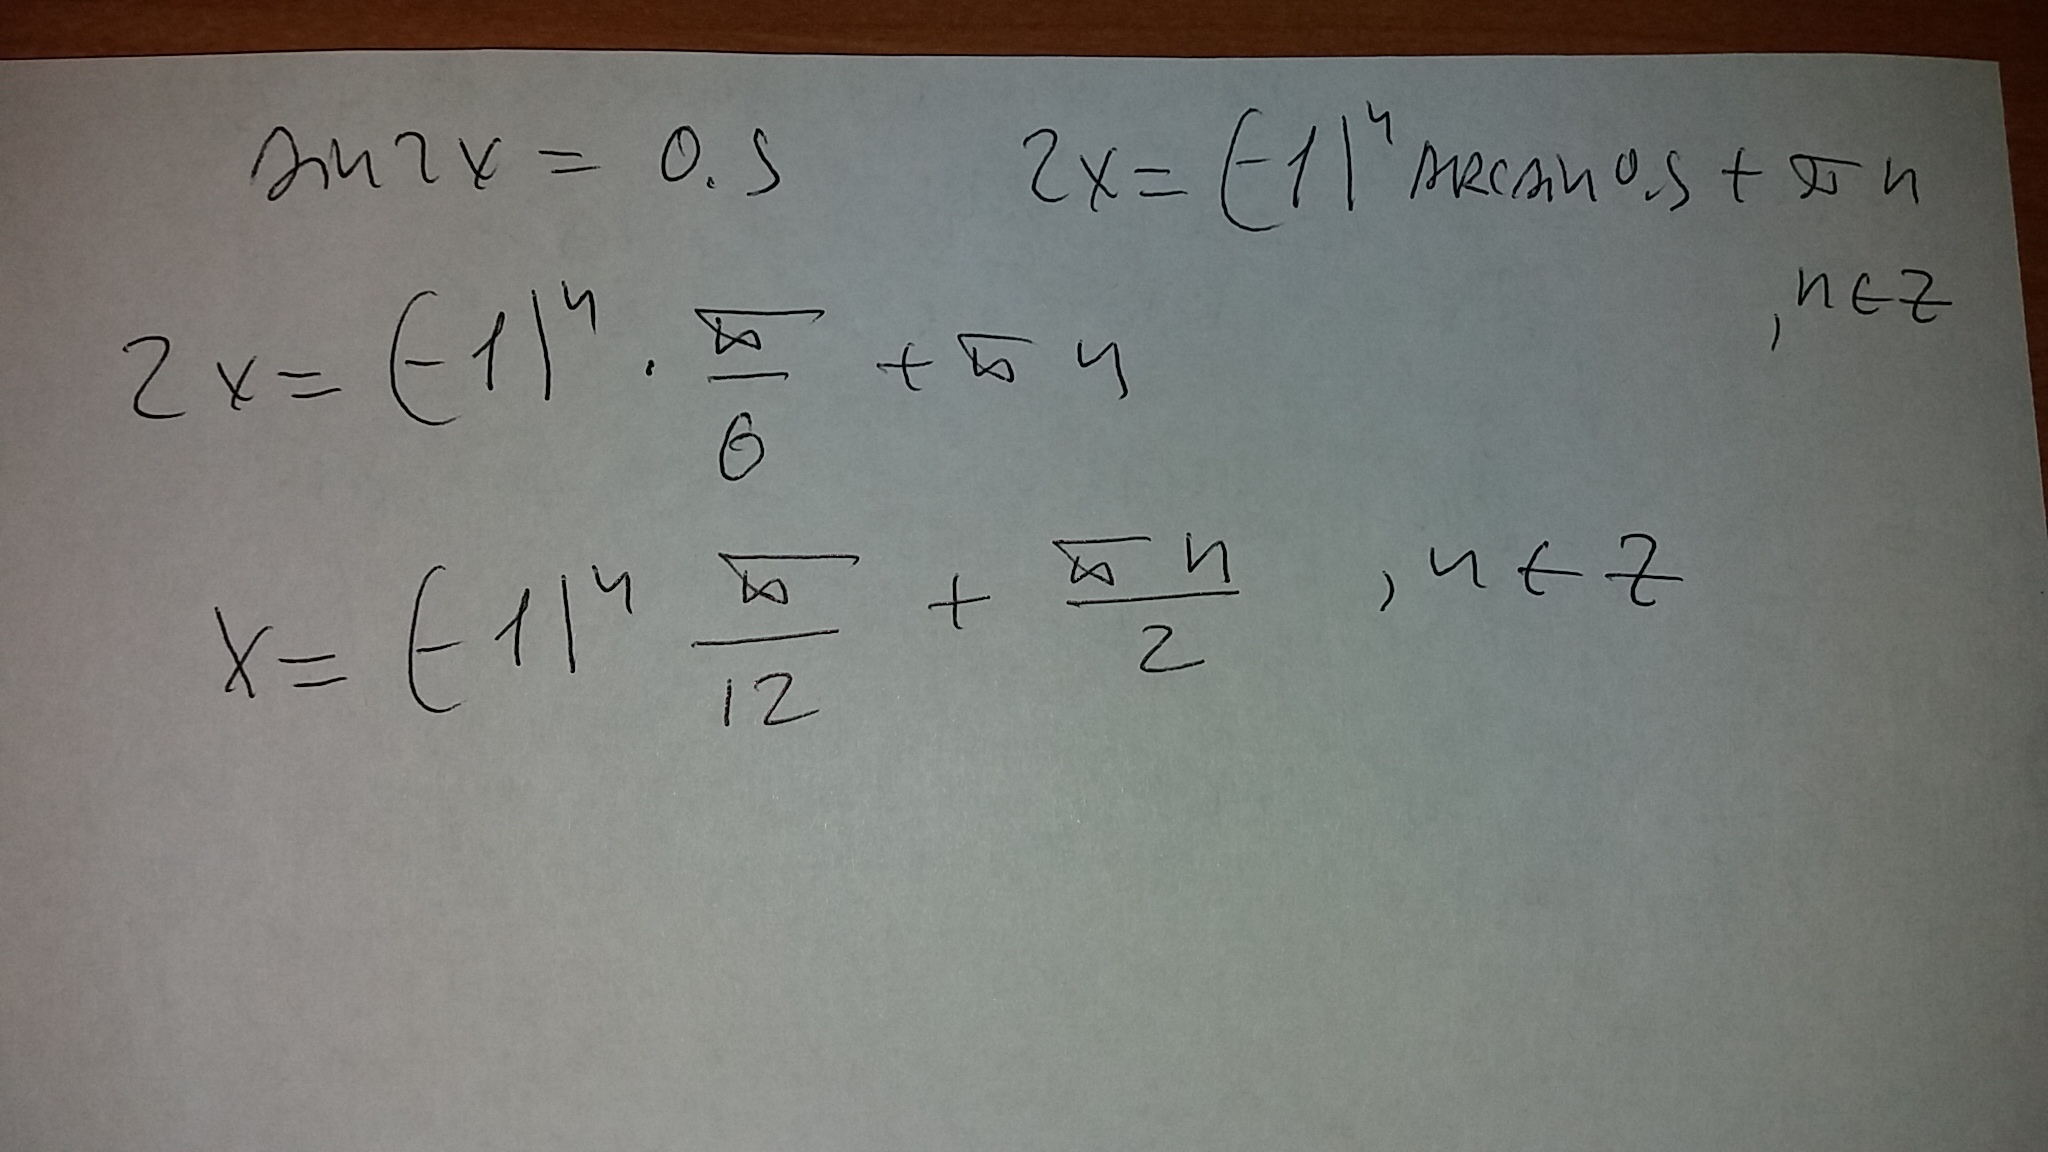 sin2x = 0.5 2x = (-1)ⁿ arcsin 0.5 + πn
, n ∈ Z
2x = (-1)ⁿ · π/6 + πn
x = (-1)ⁿ π/12 + πn/2 , n ∈ Z